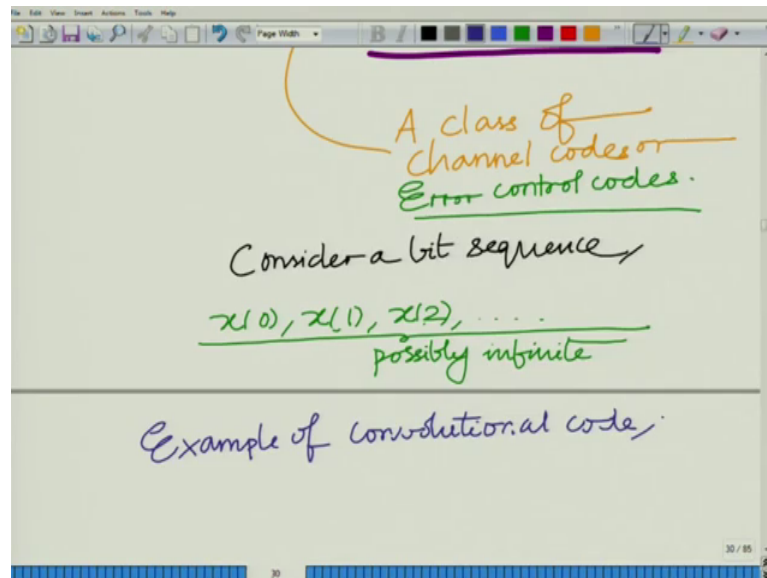 File Edit View Insert Actions Tools Help
Page Width
B I
A class of
channel codes or
Error control codes.
Consider a bit sequence,
x(0), x(1), x(2), ....
possibly infinite
Example of convolutional code,
30 / 85
30